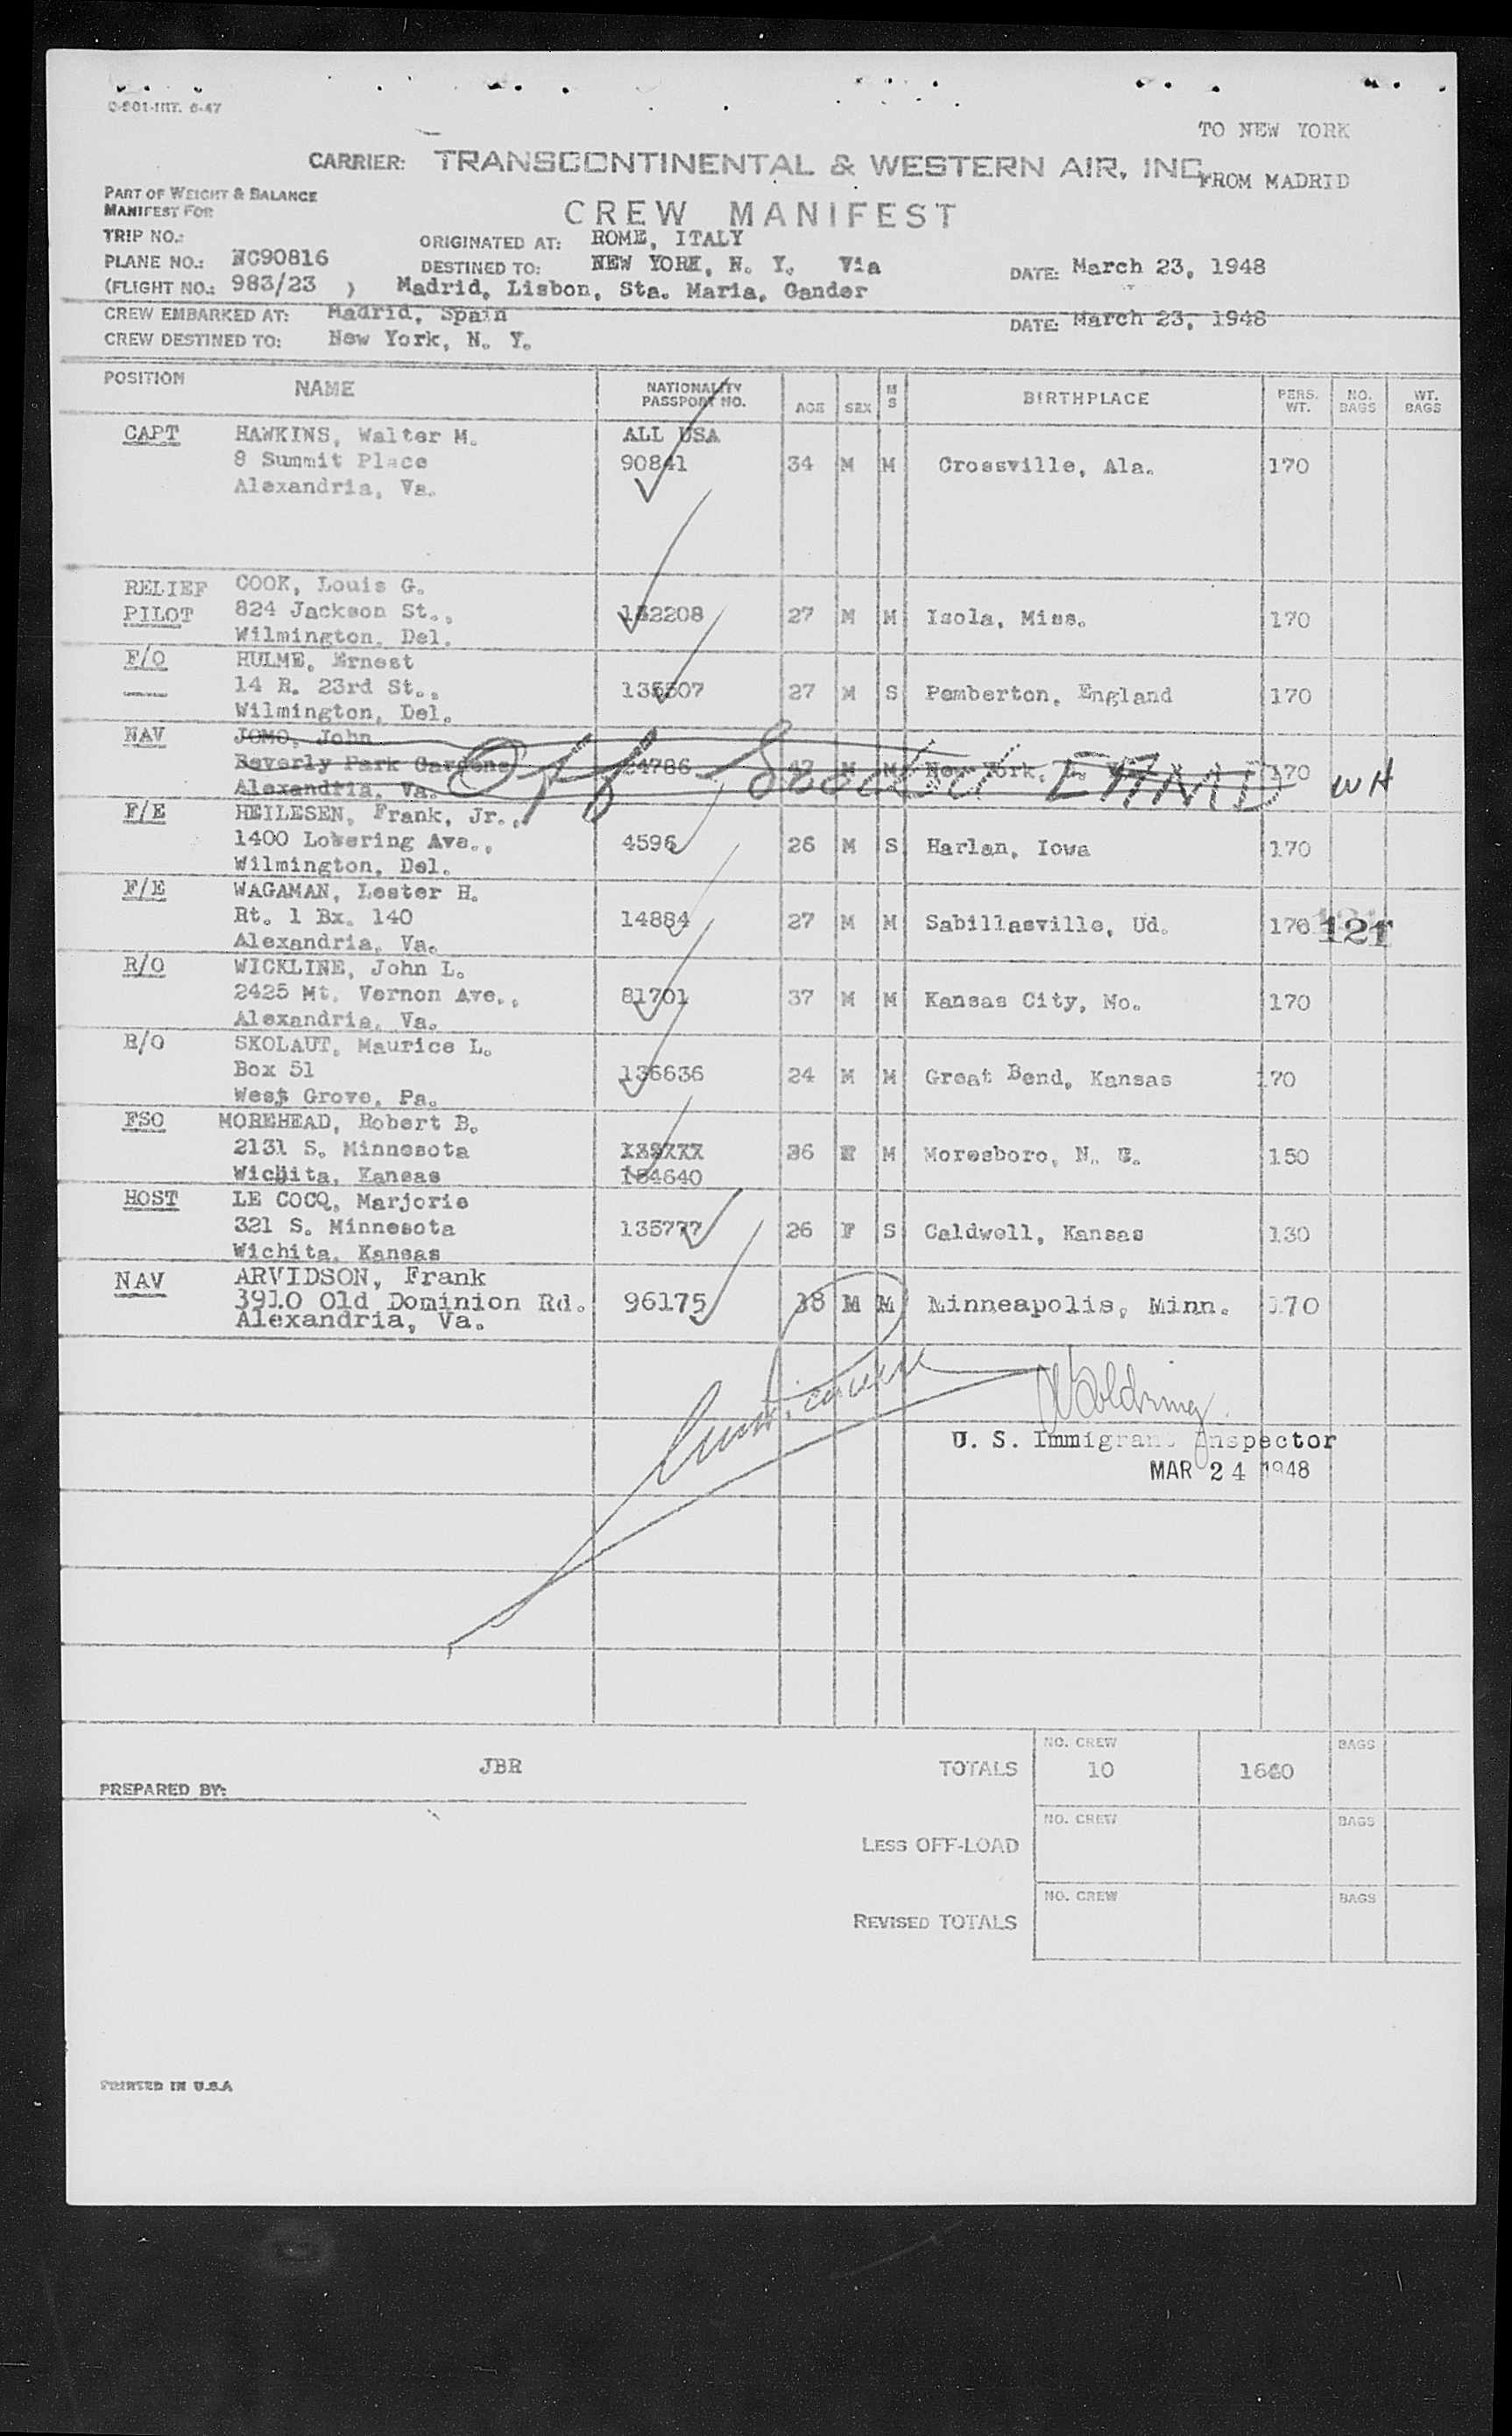 TO NEW YORK
CARRIER: TRANSCONTINENTAL & WESTERN AIR, INC.
FROM MADRID
PART OF WEIGHT & BALANCE
MANIFEST FOR
CREW MANIFEST
TRIP NO.:
ORIGINATED AT: ROME, ITALY
PLANE NO.: NC90816
DESTINED TO: NEW YORK, N. Y. Via
DATE: March 23, 1948
(FLIGHT NO.: 983/23 ) Madrid, Lisbon, Sta. Maria, Gander
CREW EMBARKED AT: Madrid, Spain
DATE: March 23, 1948
CREW DESTINED TO: New York, N. Y.
POSITION NAME NATIONALITY PASSPORT NO. AGE SEX M S BIRTHPLACE PERS. WT. NO. BAGS WT. BAGS
CAPT HAWKINS, Walter M. ALL USA
8 Summit Place 90841 34 M M Crossville, Ala. 170
Alexandria, Va.
RELIEF COOK, Louis G.
PILOT 824 Jackson St., 132208 27 M M Isola, Miss. 170
Wilmington, Del.
F/O HULME, Ernest
14 R. 23rd St., 27 M S Pemberton, England 170
Wilmington, Del.
NAV JOMO, John
Beverly Park Gardens 24786 M M New York, 170 WH
Alexandria, Va. Off
F/E HEILESEN, Frank, Jr.,
1400 Lovering Ave., 4596 26 M S Harlan, Iowa 170
Wilmington, Del.
F/E WAGAMAN, Lester H.
Rt. 1 Bx. 140 14884 27 M M Sabillasville, Ud. 170 121
Alexandria, Va.
R/O WICKLINE, John L.
2425 Mt. Vernon Ave., 81701 37 M M Kansas City, Mo. 170
Alexandria, Va.
R/O SKOLAUT, Maurice L.
Box 51 136636 24 M M Great Bend, Kansas 170
West Grove, Pa.
FSO MOREHEAD, Robert B.
2131 S. Minnesota 36 M Moresboro, N. C. 150
Wichita, Kansas 134640
HOST LE COCQ, Marjorie
321 S. Minnesota 135777 26 F S Caldwell, Kansas 130
Wichita, Kansas
NAV ARVIDSON, Frank
3910 Old Dominion Rd. 96175 38 M M Minneapolis, Minn. 170
Alexandria, Va.
U. S. Immigrant Inspector
MAR 24 1948
NO. CREW BAGS
JBR TOTALS 10 1640
PREPARED BY:
NO. CREW BAGS
LESS OFF-LOAD
NO. CREW BAGS
REVISED TOTALS
PRINTED IN U.S.A